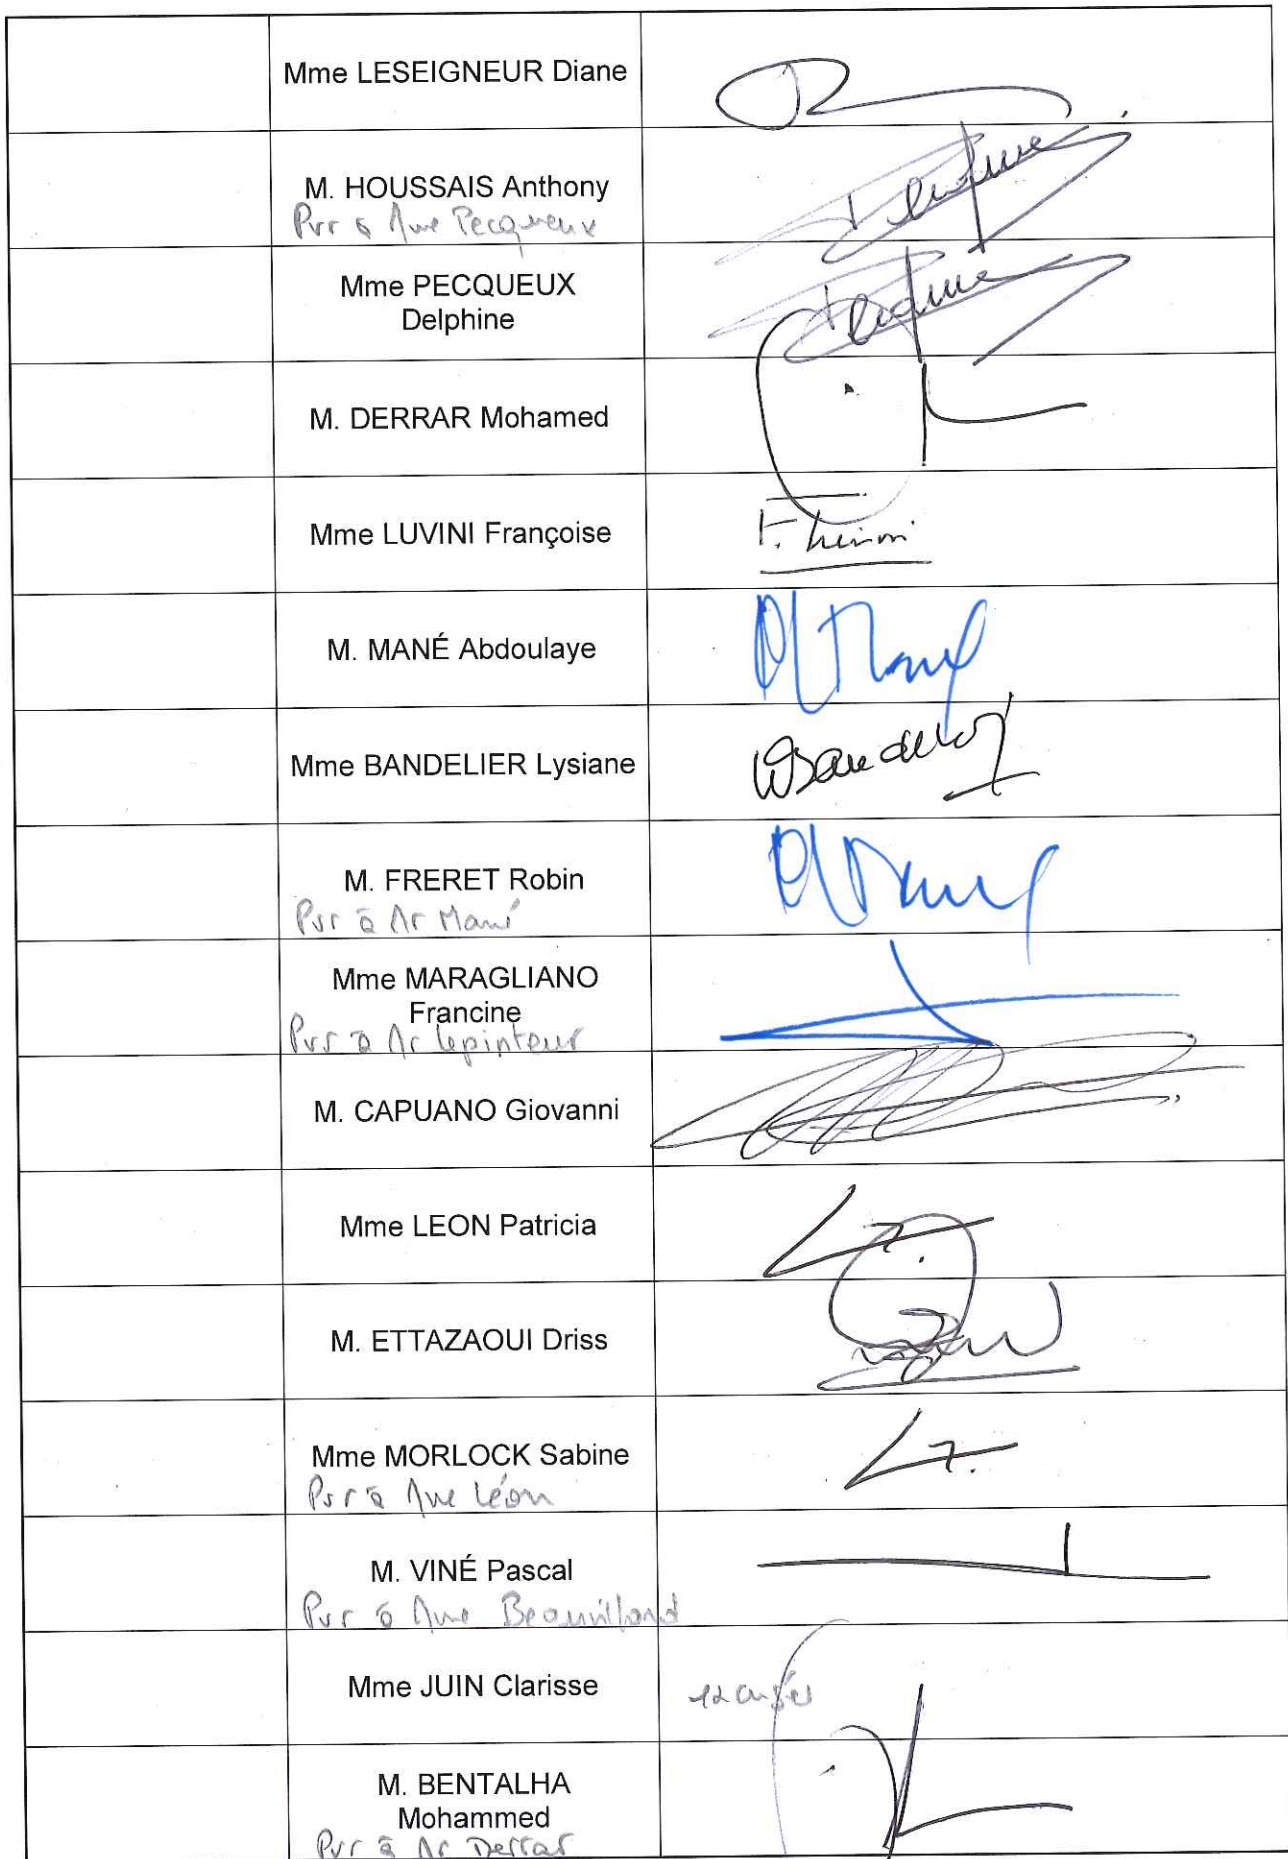 Mme LESEIGNEUR Diane
M. HOUSSAIS Anthony
Pvr à Mme Pecqueux
Mme PECQUEUX
Delphine
M. DERRAR Mohamed
Mme LUVINI Françoise
M. MANÉ Abdoulaye
Mme BANDELIER Lysiane
M. FRERET Robin
Pvr à Mr Mané
Mme MARAGLIANO
Francine
Pvr à Mr Lepinteur
M. CAPUANO Giovanni
Mme LEON Patricia
M. ETTAZAOUI Driss
Mme MORLOCK Sabine
Pvr à Mme Léon
M. VINÉ Pascal
Pvr à Mme Beauvillard
Mme JUIN Clarisse
M. BENTALHA
Mohammed
Pvr à Mr Derrar